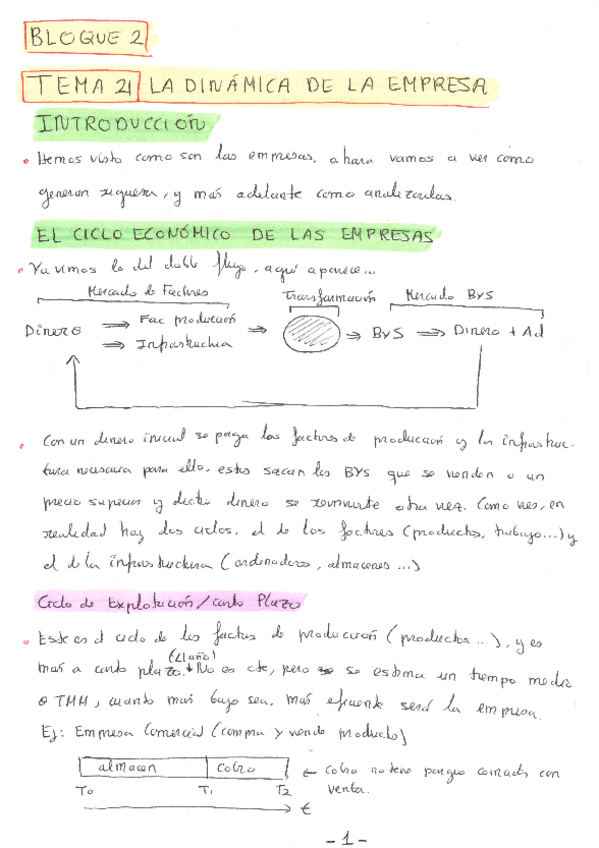 BLOQUE 2
TEMA 2 LA DINÁMICA DE LA EMPRESA
INTRODUCCIÓN
• Hemos visto como son las empresas, ahora vamos a ver como
generan riqueza, y mas adelante como analizarlas.
EL CICLO ECONÓMICO DE LAS EMPRESAS
• Ya vimos lo del doble flujo, aquí aparece...
Mercado de Factores Transformación Mercado BYS
Dinero ⇒ Fac producción ⇒ ⇒ BYS ⇒ Dinero + Ad
⇒ Infrastructura
• Con un dinero inicial se paga los factores de producción y la infrastruc-
tura necesaria para ello, estos sacan los BYS que se venden a un
precio superior y dicho dinero se reinvierte otra vez. Como ves, en
realidad hay dos ciclos, el de los factores (productos, trabajo...) y
el de la infrastructura (ordenadores, almacenes ...)
Ciclo de Explotación/corto Plazo
• Este es el ciclo de los factores de producción (productos...), y es
mas a corto plazo. (<1año) No es cte, pero se estima un tiempo medio
o TMM, cuanto mas bajo sea, mas eficiente será la empresa.
Ej: Empresa Comercial (compra y vende producto)
almacen cobro ← cobro no tiene porque coincidir con
T0 T1 T2 venta.
→ €
- 1 -